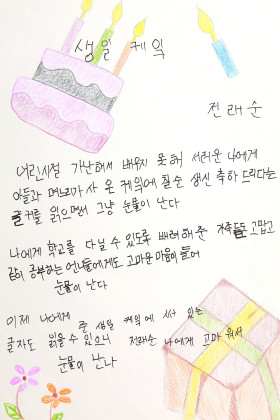 생일 케익
전래순
어린시절 가난해서 배우지 못해 서러운 나에게
아들과 며느리가 사 온 케익에 칠순 생신 축하 드린다는
글귀를 읽으면서 그냥 눈물이 난다
나에게 학교를 다닐 수 있도록 배려해 준 가족들도 고맙고
같이 공부하는 언니들에게도 고마운 마음이 들어
눈물이 난다
이제 나에게 준 생일 케익에 써 있는
글자도 읽을 수 있으니 전래순 나에게 고마워서
눈물이 난다